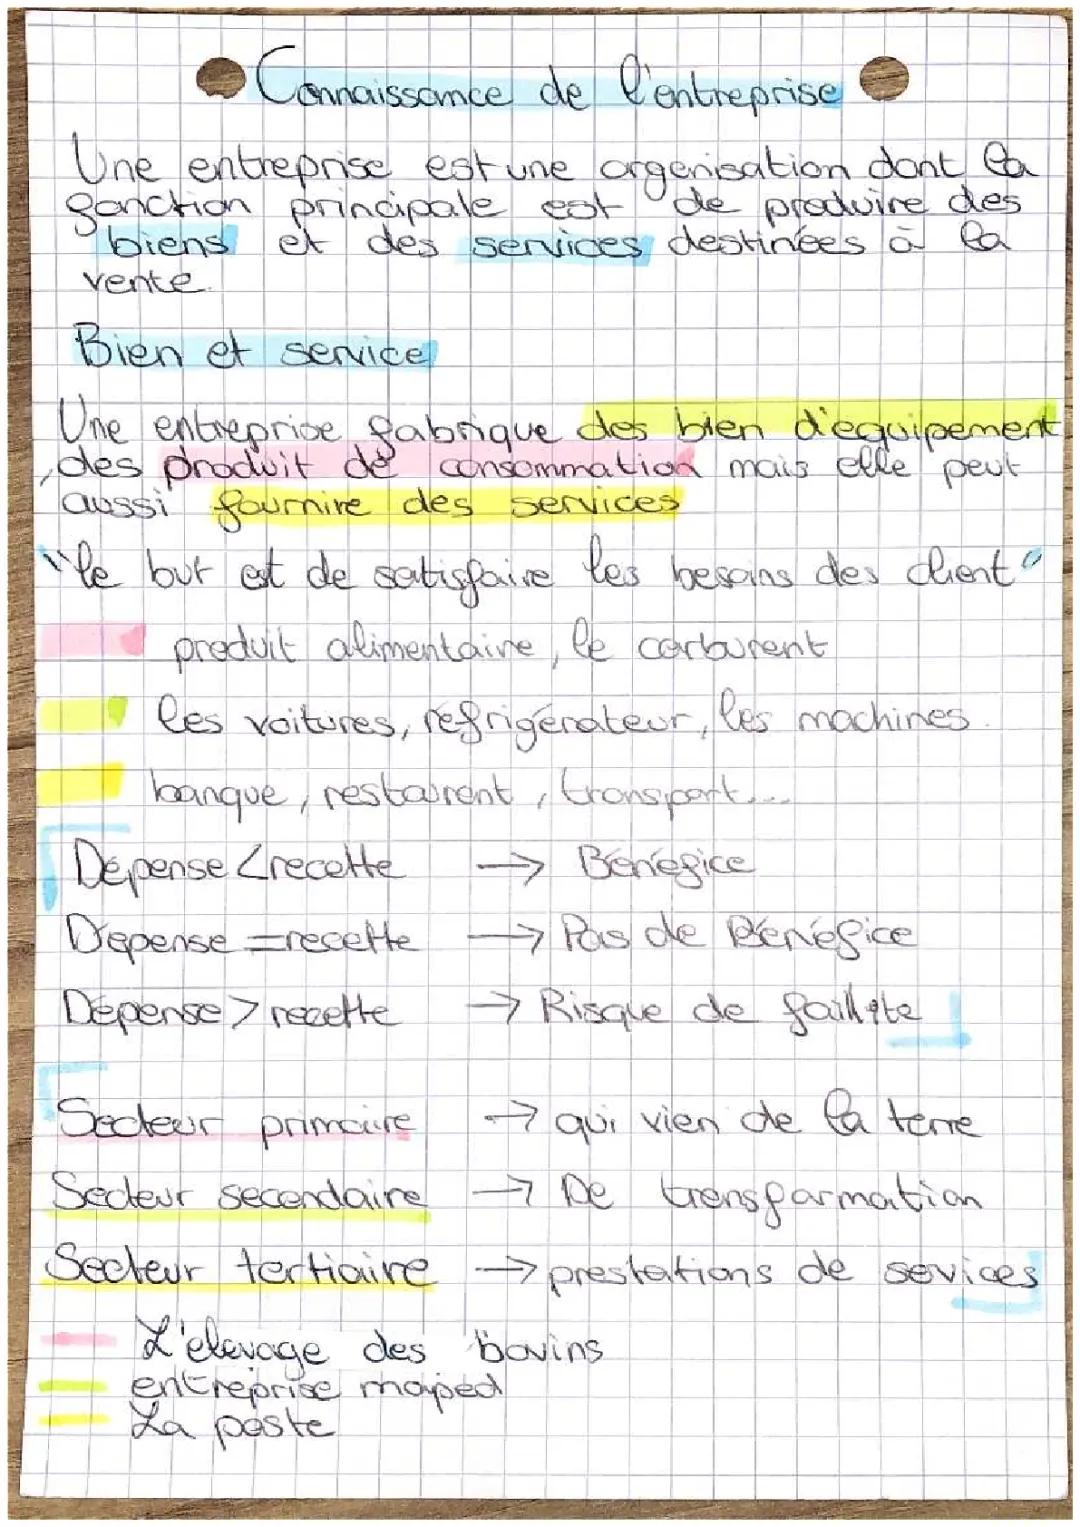 Connaissance de l'entreprise
Une entreprise est une argenisation dont la
fonction principale est de produire des
biens et des services destinées à la
vente.
Bien et service
Une entreprise fabrique des bien d'équipement
, des produit de consommation mais elle peut
aussi fournire des services
"le but est de satisfaire les besoins des client"
produit alimentaire, le carburent
les voitures, réfrigérateur, les machines.
banque, restaurent, transport...
Dépense < recette → Bénéfice
Dépense = recette → Pas de Bénéfice
Dépense > recette → Risque de faillite
Secteur primaire → qui vien de la terre
Secteur secondaire → De transformation
Secteur tertiaire → prestations de sevices
L'élevage des bovins
entreprise maped
La poste